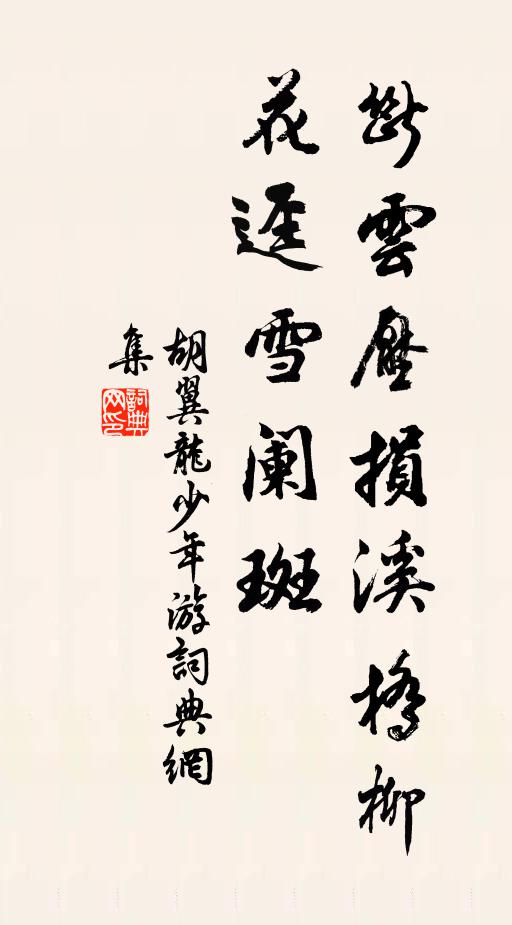 斷雲壓損溪橋柳
花逕雪闌斑
胡翼龍少年游詞典網
集
詞典
网印